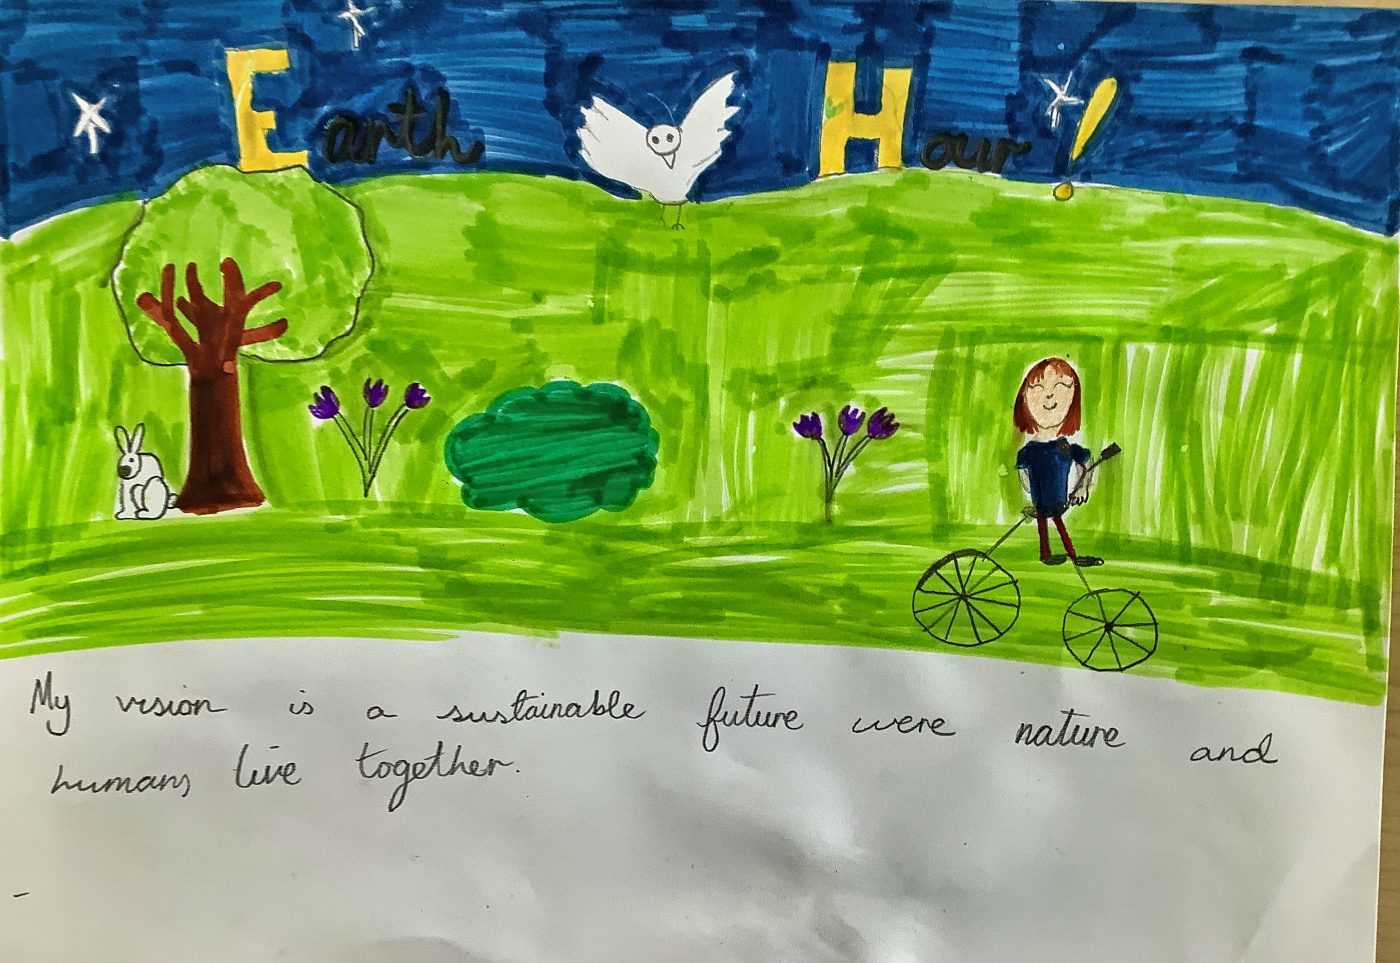 Earth Hour!
My vision is a sustainable future were nature and
humans live together.